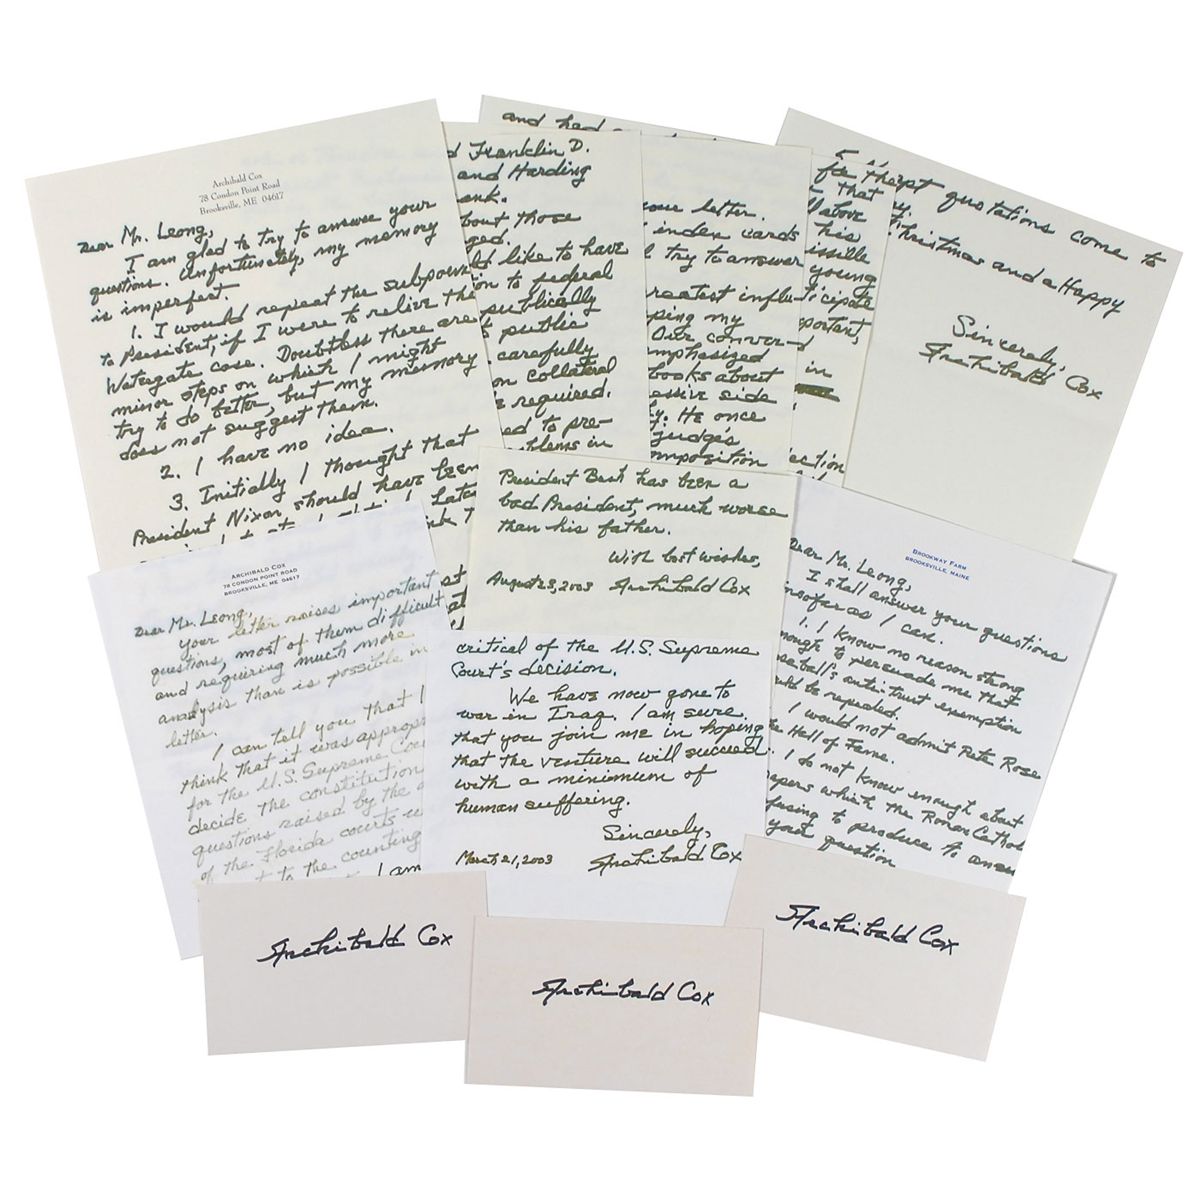 Archibald Cox
78 Condon Point Road
Brooksville, ME 04617
Dear Mr. Leong,
I am glad to try to answer your
questions. Unfortunately, my memory
is imperfect.
1. I would repeat the subpoena
to President, if I were to relive the
Watergate case. Doubtless there are
minor steps on which I might
try to do better, but my memory
does not suggest them.
2. I have no idea.
3. Initially I thought that
President Nixon should have been
and had
d Franklin D.
and Harding
ank.
bout those
ged.
ld like to have
on to federal
publically
public
carefully
on collateral
e required.
ed to pre-
blems in
your letter.
index cards
l try to answer
reatest influ-
ping my
Our conver-
emphasized
books about
essive side
y. He once
judge's
mposition
that
ll above
his
issible
young
ticipate
portant,
in
ection
quotations come to
Christmas and a Happy
Sincerely,
Archibald Cox
President Bush has been a
bad President, much worse
than his father.
With best wishes,
August 23, 2003 Archibald Cox
Archibald Cox
78 Condon Point Road
Brooksville, ME 04617
Dear Mr. Leong,
Your letter raises important
questions, most of them difficult
and requiring much more
analysis than is possible in
letter.
I can tell you that I
think that it was approp
for the U.S. Supreme Cou
decide the constitution
questions raised by the
of the Florida courts
to the counting
I am
critical of the U.S. Supreme
Court's decision.
We have now gone to
war in Iraq. I am sure
that you join me in hoping
that the venture will succeed
with a minimum of
human suffering.
Sincerely,
March 21, 2003 Archibald Cox
Brookway Farm
Brooksville, Maine
Dear Mr. Leong,
I shall answer your questions
insofar as I can.
1. I know no reason strong
enough to persuade me that
baseball's anti-trust exemption
should be repealed.
I would not admit Pete Rose
the Hell of Fame.
I do not know enough about
papers which the Roman Catholi
fusing to produce to answer
your question
Archibald Cox
Archibald Cox
Archibald Cox